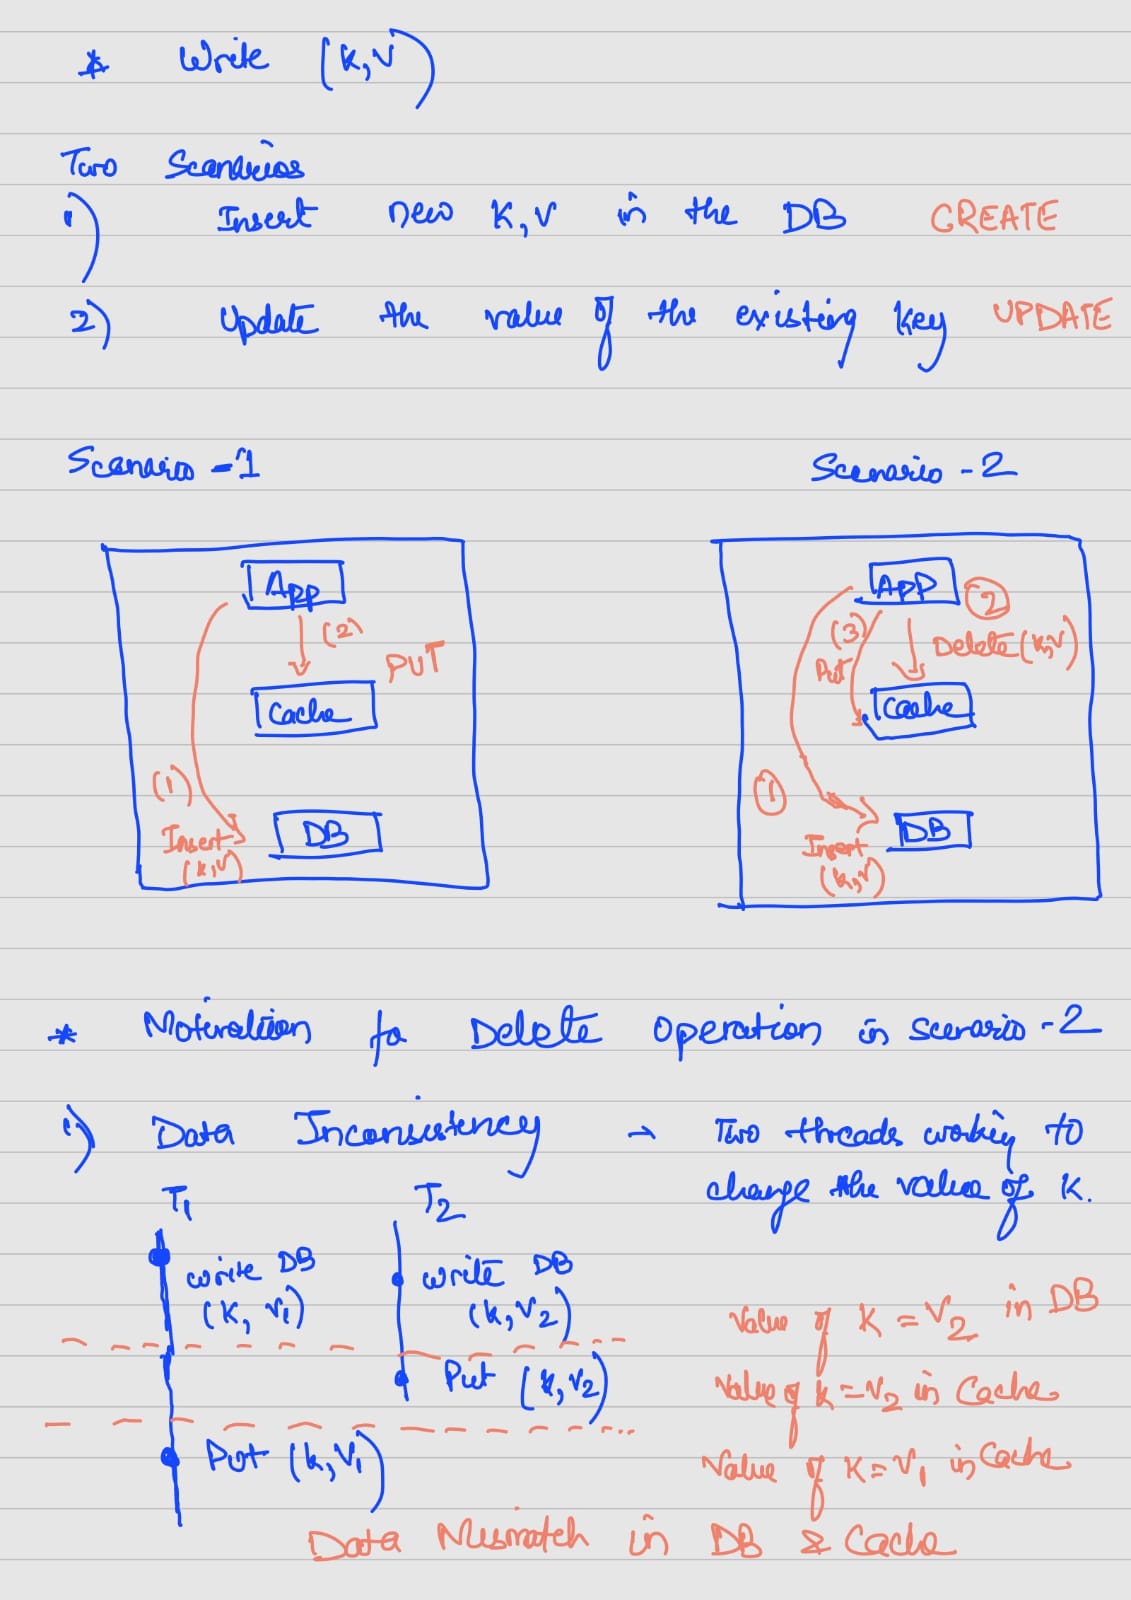 * Write (K,V)
Two Scenarios
1) Insert new K,V in the DB CREATE
2) Update the value of the existing key UPDATE
Scenario - 1
Scenario - 2
App
(2)
PUT
Cache
(1)
Insert
(k,v)
DB
App
(2)
Delete (k,v)
(3)
Put
Cache
(1)
Insert
(k,v)
DB
* Motivation fo Delete Operation in scenario - 2
1) Data Inconsistency → Two threads working to
change the value of K.
T1 T2
write DB
(K, V1)
write DB
(K, V2)
Value of K = V2 in DB
Put (k,v2)
Value of K = V2 in Cache
Put (k,V1)
Value of K = V1 in Cache
Data Mismatch in DB & Cache